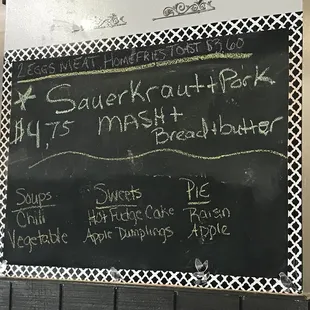 2 EGGS MEAT HOMEFRIES TOAST $3.60
* Sauerkraut + Pork
$4,75 MASH +
Bread + butter
Soups Sweets PIE
Chili Hot Fudge Cake Raisin
Vegetable Apple Dumplings Apple